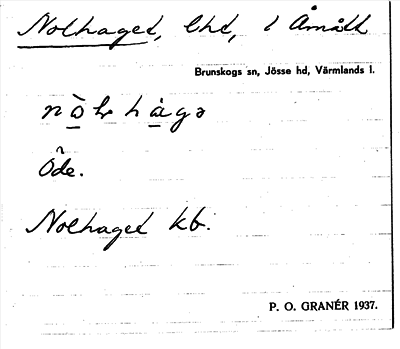 Nolhaget, lhd, i Åmått
Brunskogs sn, Jösse hd, Värmlands l.
Öde.
Nolhaget kb.
P. O. GRANÉR 1937.